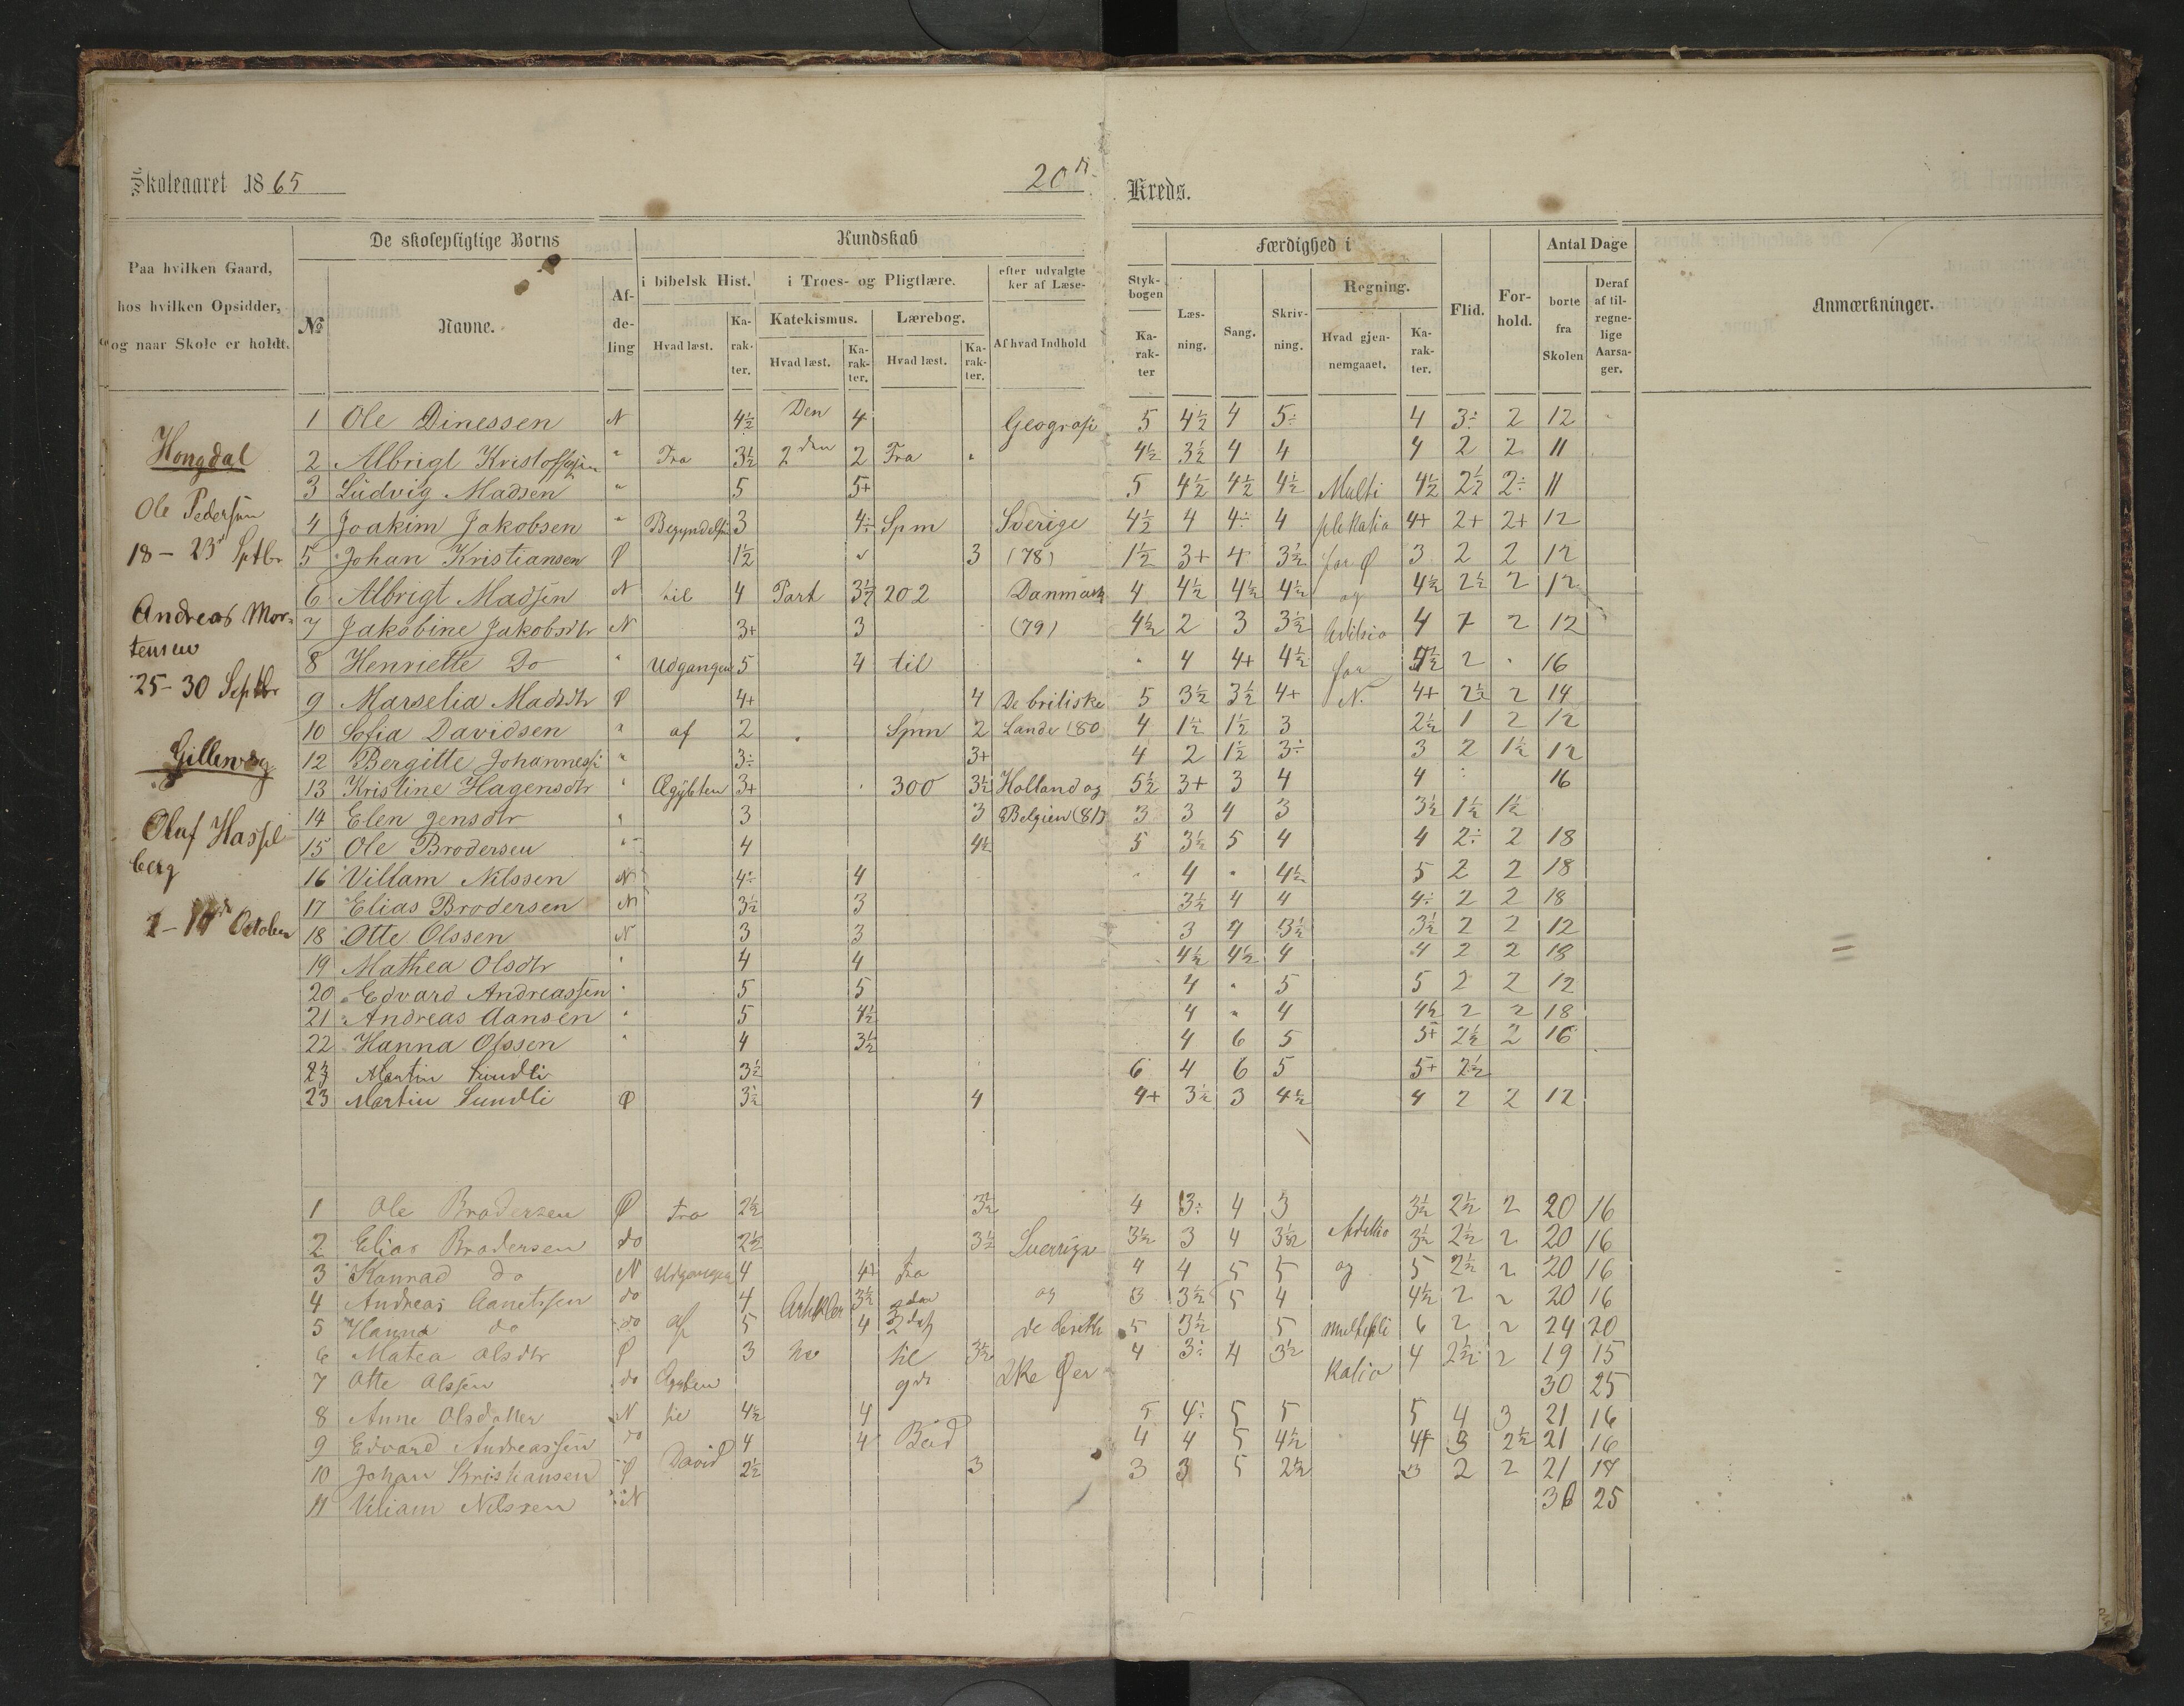 Skoleaaret 1865
20de Kreds.
Paa hvilken Gaard, hos hvilken Opsidder, og naar Skole er holdt.
De skolepligtige Børns
№
Navne.
Af-de-ling
Kundskab
i bibelsk Hist.
Hvad læst.
Ka-rak-ter.
i Troes- og Pligtlære.
Katekismus.
Hvad læst.
Ka-rak-ter.
Lærebog.
Hvad læst.
Ka-rak-ter.
efter udvalgte
ker af Læse-
Af hvad Indhold
Styk-
bogen
Ka-rak-ter
Færdighed i
Læs-ning.
Sang.
Skriv-ning.
Regning.
Hvad gjen-nemgaaet.
Ka-rak-ter.
Flid.
For-hold.
Antal Dage
borte fra Skolen
Deraf af til-regne-lige Aarsa-ger.
Anmærkninger.
Hongdal
Ole Pedersen
18 - 23 Sptbr
Andreas Mor-
tensen
25 - 30 Septbr
Olaf Hassel
berg
October
1 Ole Dinessen N 4½ Den 4 Geografi 5 4½ 4 5÷ 4 3÷ 2 12
2 Albrigt Kristoffersen " Fra 3½ 2den 2 Fra " 4½ 3½ 4 4 4 2 2 11
3 Ludvig Madsen " 5 5+ 5 4½ 4½ 4½ Multi 4½ 2½ 2÷ 11
4 Joakim Jakobsen " Begyndelsen 3 4÷ Spm Sverige 4½ 4 4÷ 4 plikatio 4+ 2+ 2+ 12
5 Johan Kristiansen Ø 1½ " 3 (78) 1½ 3+ 4 3½ for Ø 3 2 2 12
6 Albrigt Madsen N til 4 Part 3½ 202 Danmark 4 4½ 4½ 4½ og 4½ 2½ 2 12
7 Jakobine Jakobsdtr N 3+ 3 (79) 4½ 2 3 3½ 4 2 12
8 Henriette Do " Udgangen 5 4 til " 4 4+ 4½ for 2 " 16
9 Marselia Madsdtr Ø 4+ 4 De britiske 5 3½ 3½ 4+ N. 4+ 2½ 2 14
10 Sofia Davidsen " af 2 " Spm 2 Lande (80 4 1½ 1½ 3 2½ 1 2 12
12 Bergitte Johannes " 3÷ 3+ 4 2 1½ 3÷ 3 2 1½ 12
13 Kristine Hagensdtr " Ægÿbten 3+ 300 3½ Holland og 5½ 3+ 3 4 4 16
14 Elen Jensdtr " 3 3 Belgien (81) 3 3 4 3 3½ 1½ 1½
15 Ole Brodersen " 4 4½ 5 3½ 5 4 4 2÷ 2 18
16 Villam Nilssen N 4÷ 4 4 " 4½ 5 2 2 18
17 Elias Brodersen N 3½ 3 3½ 4 4 4÷ 2 2 18
18 Otte Olssen N 3 3 3 4 3½ 3½ 2 2 12
19 Mathea Olsdtr " 4 4 4½ 4½ 4 4 2 2 18
20 Edvard Andreassen " 5 5 4 " 5 5 2 2 12
21 Andreas Aansen " 5 4½ 4 " 4 4½ 2 2 18
22 Hanna Olssen " 4 3½ 4 6 5 5+ 2½ 2 16
Martin Sundli 3½ 6 4 6 5 5+ 2½
23 Martin Sundli Ø 3½ 4 4+ 3½ 3 4½ 4 2 2 12
1 Ole Brodersen Ø fra 2½ 3½ 4 3÷ 4 3 3½ 2½ 2 20 16
2 Elias Brodersen do 2½ 3½ Suerrige 3½ 3 4 3½ 3½ 2½ 2 20 16
3 Konrad do N Udgangen 4 fra 4 4 5 5 og 5 2½ 2 20 16
4 Andreas do 4 Artikler 3½ og 3 3½ 5 4 4½ 2 2 20 16
5 Hanna do do af 5 4 5 3½ 5 multipli 6 2 2 24 20
6 Matea Olsdtr Ø 3 til 3½ 4 3÷ 4 3½ 4 2½ 2 19 15
7 Otte Olssen do ke Øer katio 30 25
8 Anne Olsdatter N til 4½ 4 5 4÷ 5 5 5 4 3 21 16
9 Edvard Andreassen do 4 4 Bud 4 4 5 4½ 4+ 3 2½ 21 16
10 Johan Kristiansen Ø David 2½ 3 3 3 5 2½ 3 2 2 21 17
11 Viliam Nilssen N 25